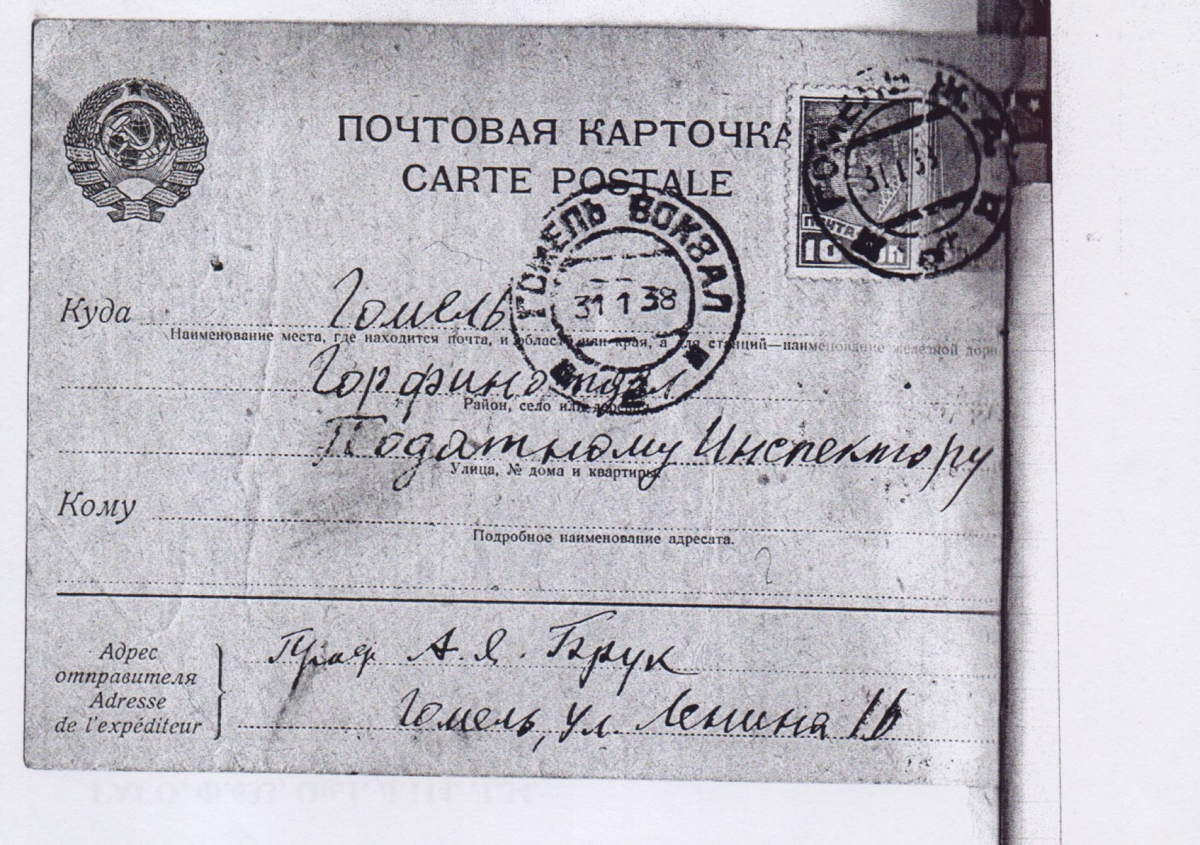 ПОЧТОВАЯ КАРТОЧКА
CARTE POSTALE
ГОМЕЛЬ Ж.Д.
31 1 38
ПОЧТА
10 КОП
ГОМЕЛЬ ВОКЗАЛ
31 1 38
Куда Гомель
Наименование места, где находится почта, и область или край, а для станций—наименование железной дор
Горфинотдел
Район, село или деревня.
Податному Инспектору
Улица, № дома и квартиры.
Кому
Подробное наименование адресата.
Адрес
отправителя
Adresse
de l'expéditeur
Проф А. Я. Брук
Гомель, ул. Ленина